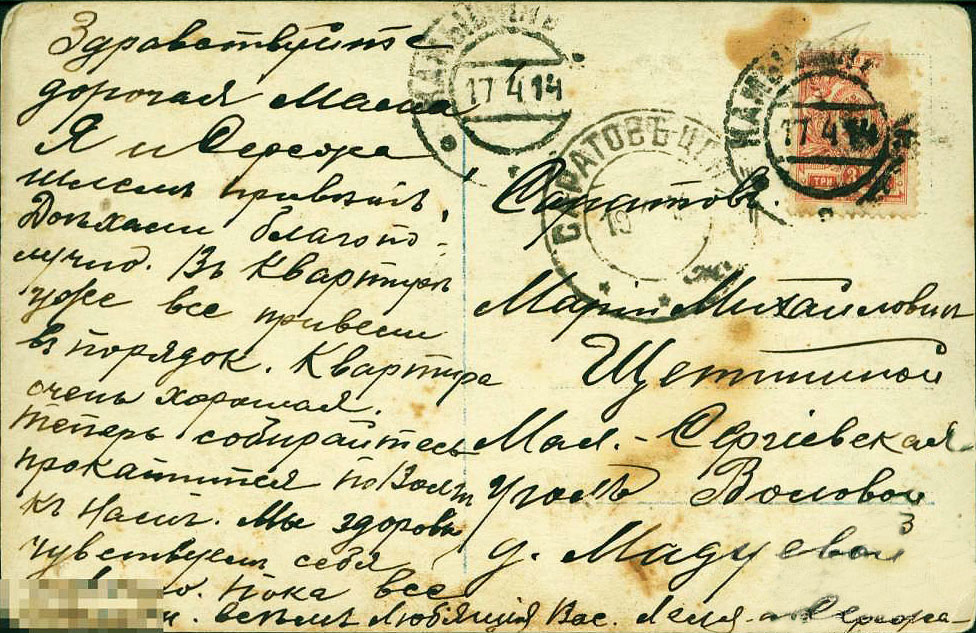 Здравствуйте
дорогая Мама
Я и Сережа
шлемъ привѣтъ,
Доѣхали благопо-
лучно. Въ квартирѣ
уже все привели
въ порядок. Квартира
очень хорошая.
Теперь собирайтесь
прокатится по Волгѣ
къ намъ. Мы здоровы
чувствуем себя
Пока все
всѣмъ Любящія Вас. Леля и Сережа
КАМЫШИНЪ
17 4 14
САРАТОВЪ
19
КАМЫШИНЪ
17 4 14
ТРИ 3
Саратовъ.
Маріи Михайловнѣ
Щетининой
Мал.-Сергіевская
уголъ Воловой
д.
3